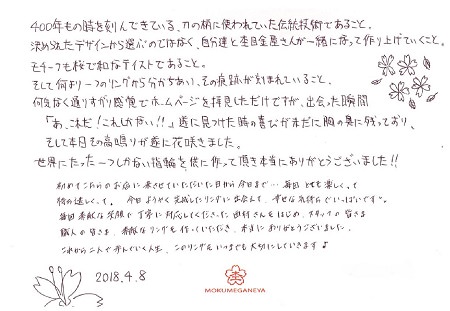 400年もの時を刻んできている、刀の柄に使われていた伝統技術であること。
決められたデザインから選ぶのではなく、自分達と杢目金屋さんが一緒になって作り上げていくこと。
モチーフも桜で和なテイストであること。
そして何より一つのリングから分かちあい、その痕跡が刻まれていること。
何気なく通りすがり感覚でホームページを拝見しただけですが、出会った瞬間
「あ、これだ!これしかない!!」遂に見つけた時の喜びが未だに胸の奥に残っており、
そして本日その高鳴りが遂に花咲きました。
世界にたった一つしかない指輪を供に作って頂き本当にありがとうございました!!
初めてこちらのお店に来させていただいた日から今日まで… 毎回とても楽しくて
待ち遠しくて。今日ようやく完成したリングに出会えて、幸せな気持ちでいっぱいです。
毎回素敵な笑顔で丁寧に対応してくださった田村さんをはじめ、スタッフの皆さま
職人の皆さま、素敵なリングを作っていただき、本当にありがとうございました。
これから二人で歩んでいく人生、このリングをいつまでも大切にしていきます♪
2018.4.8
MOKUMEGANEYA